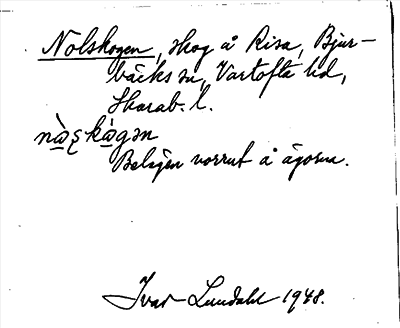 Nolskogen, skog å Risa, Bjur-
bäcks sn, Vartofta hd,
Skarab. l.
nàʂkàgən
Belägen norrut å ägorna.
Ivar Lundahl 1948.